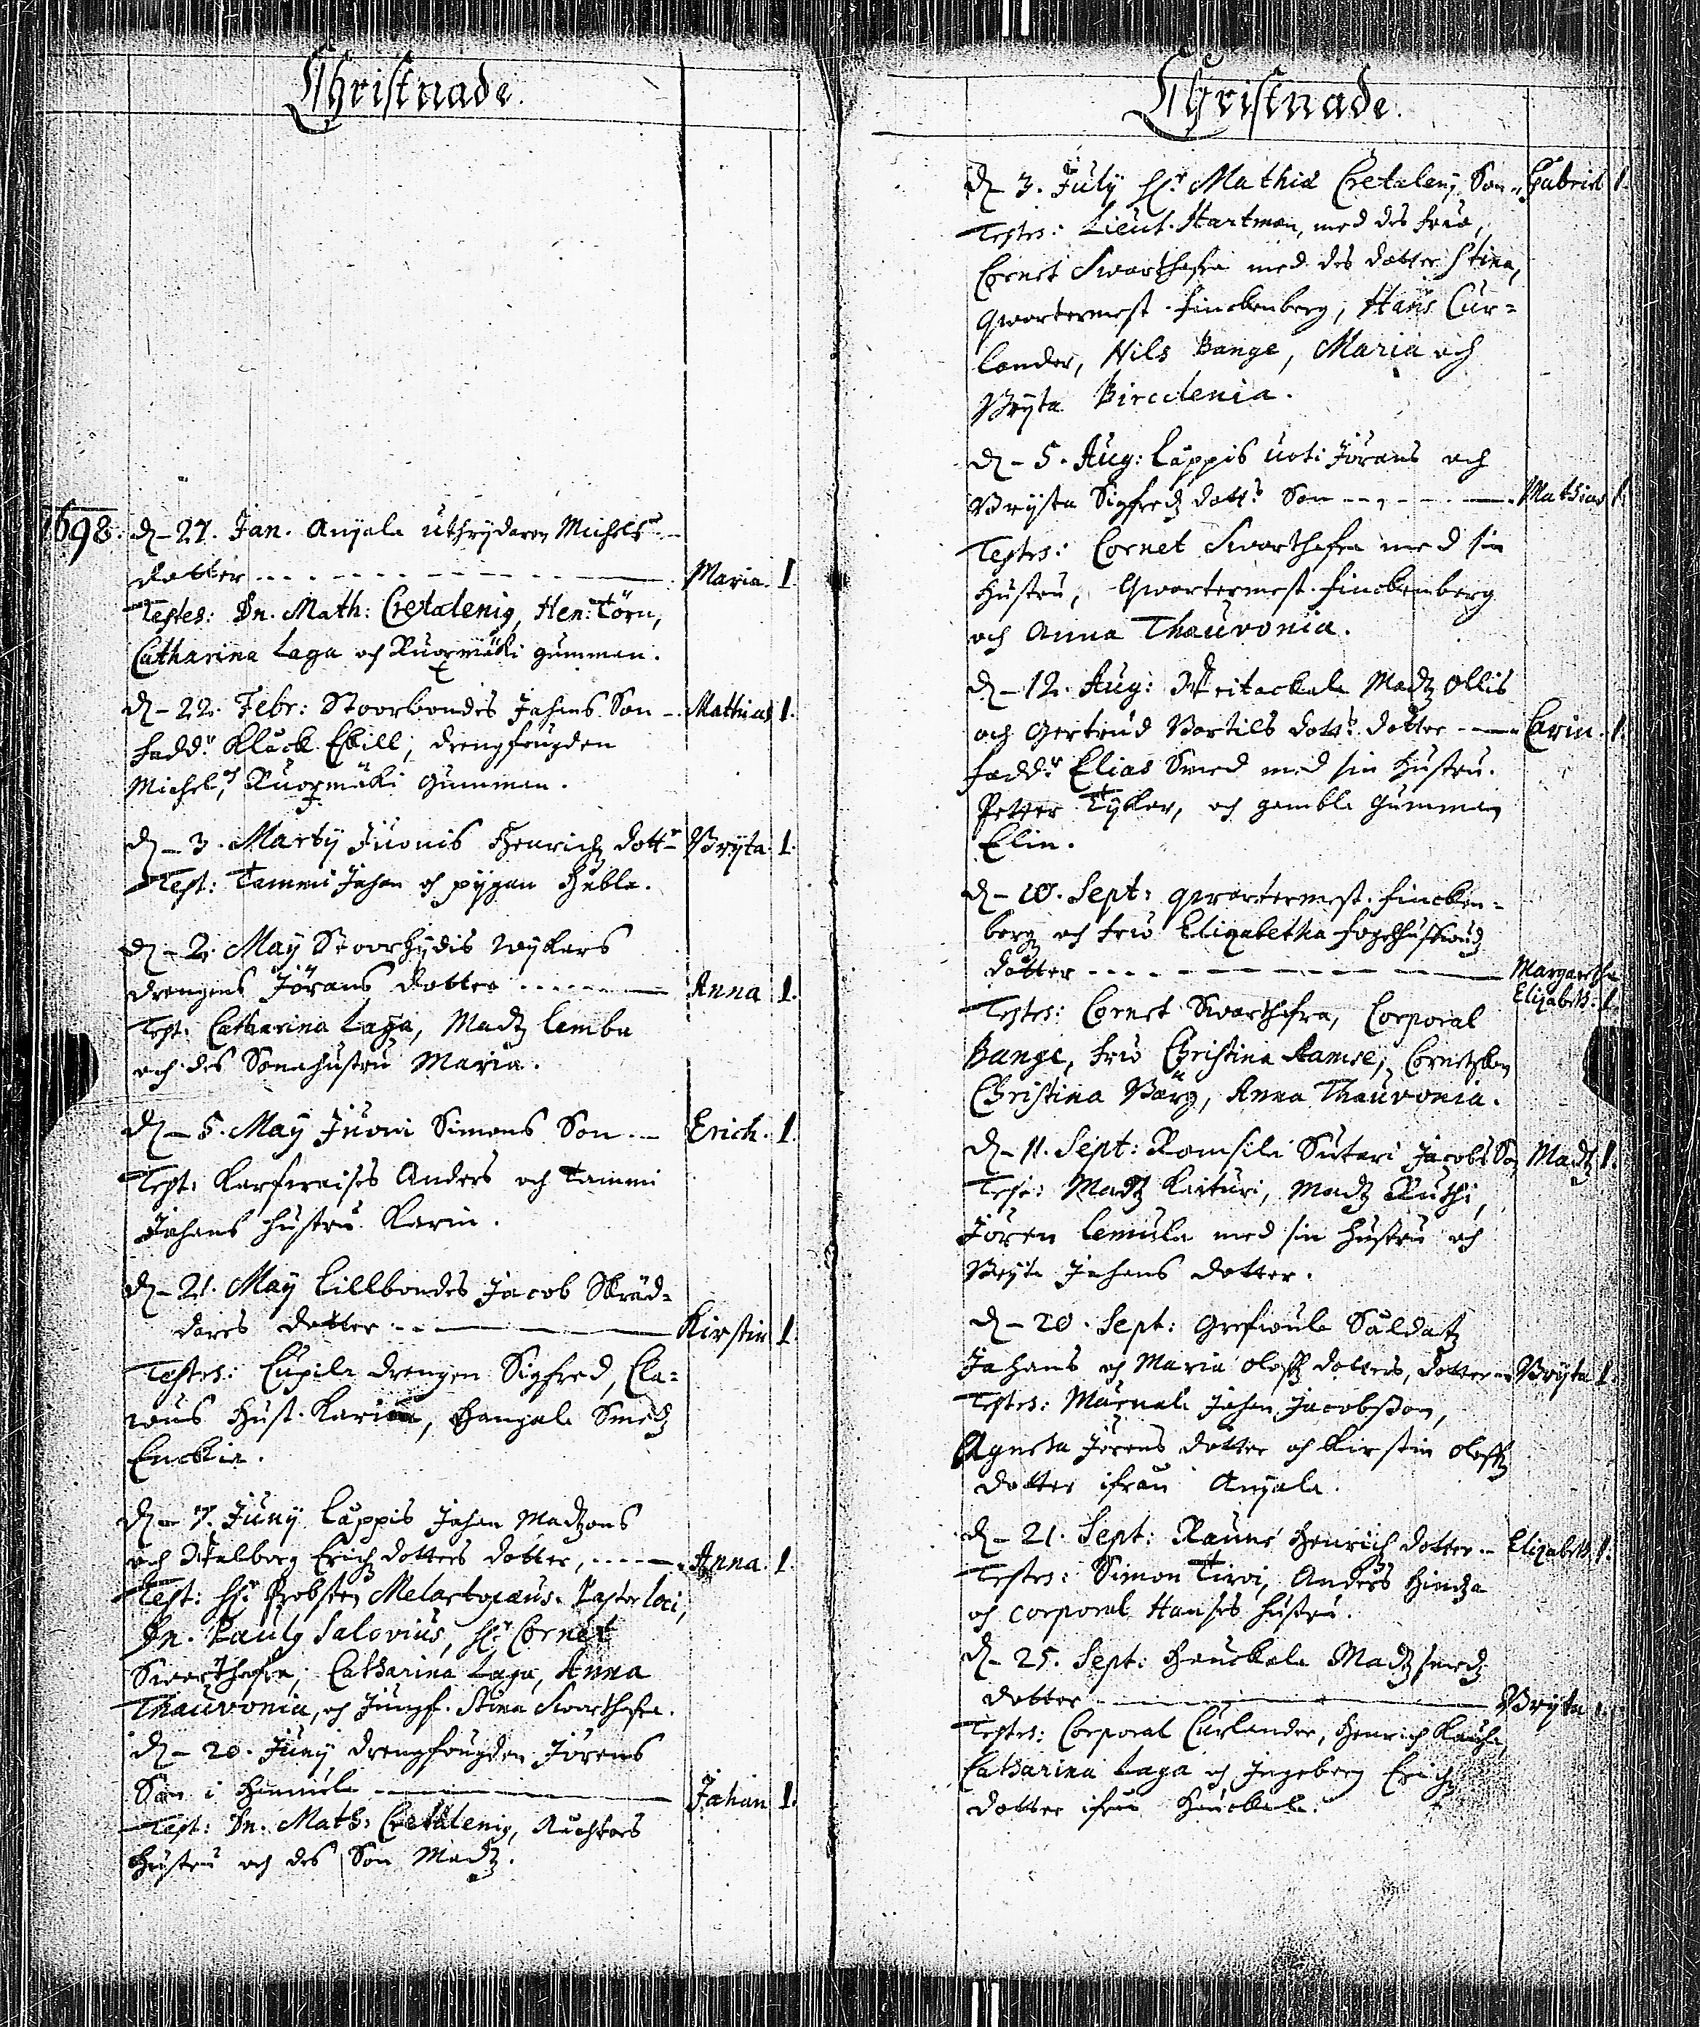 Christnade.
1698. d. 27. Jan. Anjala uthrydaren Michels
dotter Maria. 1.
Testes: Dn. Math: Cretalenig, Hen: Törn,
Catharina Laga och Ruotzmäki gumman.
d. 22. Febr: Stoorbondes Johans Son Mathias 1.
Fadd. Klåck Eskill, drengfougden
Michel, Ruotzmäki Gumman.
d. 3. Marty Juonis Henrichz dott. Bryta 1.
Test: Tammi Johan och pygan Hebla.
d. 2. May Stoorhydis
drengens Jörans dotter Anna 1.
Test: Catharina Laga, Madz Lembu
och des Sonahustru Maria.
d. 5. May Juoni Simons Son Erich. 1.
Test: Anders och Tammi
Johans hustru Karin.
d. 21. May Lillbondes Jacob Skräd=
dares dotter Kirstin 1.
Testes: drengen Sigfred, Cla=
wus Hust. Karin, Smedz
Enckia.
d. 7. Juny Lappis Johan Madzons
och Walborg Erichz dotters dotter, Anna. 1.
Test: H. Probsten Melartopæus. Pastor loci,
Dn. Paulg Salovius, H. Cornet
Swarthafra, Catharina Laga, Anna
Thauvonia, och Jungf. Stina Swarthafra.
d. 20. Juny drengfougden Jörens
Son i Johan 1.
Test: Dn. Math: Cretalenig,
hustru och des Son Madz.
Christnade.
d. 3. July H. Mathiæ Cretaleny Son Gabriel 1.
Testes: Lieut. Hartman, med des fruo,
Cornet Swarthafra med des dotter Stina,
Qwartermest. Finckenberg, Hans Cur=
lander, Nils Bange, Maria och
Bryta Circclenia.
d. 5. Aug: Lappis Uoti Jörans och
Brysta Sigfredz dott. Son Mathias 1.
Testes: Cornet Swarthafra med sin
hustru, Qwartermest. Finckenberg
och Anna Thauvonia.
d. 12. Aug: Madz Ollis
och Gertrud Bertils dott. dotter Carin. 1.
Fadd. Elias Smed med sin hustru.
Petter Tykar, och gamble Gumman
Elin.
d. 10. Sept: qwartermest. Fincken-
berg och fruo Elizabetha
dotter Margaretha
Elizabeth. 1.
Testes: Cornet Swarthafra, Corporal
Bange, fruo Christina Ramse,
Christina Bärg, Anna Thauvonia.
d. 11. Sept: Ramsila Sutari Jacobs Son Madz 1.
Test: Madz Kaituri, Madz Ruthi,
Jören Lemula med sin hustru och
Bryta Johans dotter.
d. 20. Sept: Såldatz
Johans och Maria Oloffz dotters, dotter Bryta 1.
Testes: Johan Jacobsson,
Agneta Jörens dotter och Kirstin Oloffz
dotter ifrån Anjala.
d. 21. Sept: Henrich dotter Elizabeth 1.
Testes: Simon Tirvi, Anders
och Corporal Hanses hustru.
d. 25. Sept: Madz smedz
dotter Bryta 1.
Testes: Corporal Curlander, Henrich
Catharina Laga och Ingeborg Erichz
dotter ifrån